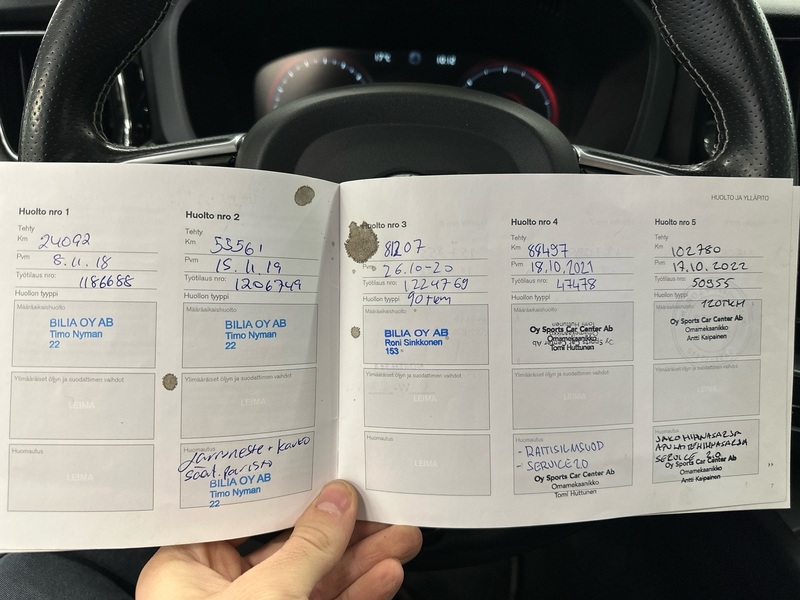 17°C
HUOLTO JA YLLÄPITO
Huolto nro 1
Tehty
Km 24092
Pvm 8.11.18
Työtilaus nro: 1186688
Huollon tyyppi
Määräaikaishuolto
BILIA OY AB
Timo Nyman
22
Ylimääräiset öljyn ja suodattimen vaihdot
LEIMA
Huomautus
LEIMA
Huolto nro 2
Tehty
Km 53561
Pvm 15.11.19
Työtilaus nro: 1206749
Huollon tyyppi
Määräaikaishuolto
BILIA OY AB
Timo Nyman
22
Ylimääräiset öljyn ja suodattimen vaihdot
LEIMA
Huomautus
Jarruneste + kauko
sääd. paristo
BILIA OY AB
Timo Nyman
22
Huolto nro 3
81207
Pvm 26.10-20
Työtilaus nro: 1224769
Huollon tyyppi 90tkm
Määräaikaishuolto
BILIA OY AB
Roni Sinkkonen
153
Ylimääräiset öljyn ja suodattimen vaihdot
LEIMA
Huomautus
LEIMA
Huolto nro 4
Tehty
Km 88497
Pvm 18.10.2021
Työtilaus nro: 47478
Huollon tyyppi
Määräaikaishuolto
Oy Sports Car Center Ab
Omamekaanikko
Tomi Huttunen
Ylimääräiset öljyn ja suodattimen vaihdot
LEIMA
Huomautus
- RAITISILMSUOD
- SERVICE 2.0
Oy Sports Car Center Ab
Omamekaanikko
Tomi Huttunen
Huolto nro 5
Tehty
Km 102780
Pvm 17.10.2022
Työtilaus nro: 50955
Huollon tyyppi 120TKM
Määräaikaishuolto
Oy Sports Car Center Ab
Omamekaanikko
Antti Kaipainen
Ylimääräiset öljyn ja suodattimen vaihdot
LEIMA
Huomautus
JAKOHIHNASARJA
APULAITEHIHNASARJA
SERVICE 2.0
Oy Sports Car Center Ab
Omamekaanikko
Antti Kaipainen